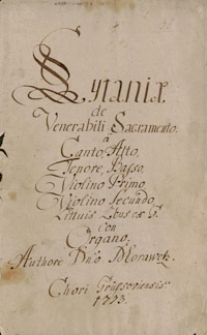 Lytaniæ
de
Venerabili Sacramento.
à
Canto, Alto,
Tenore, Basso,
Violino Primo,
Violino Secundo,
Lituis 2bus ex G.
Con
Organo.
Authore Dno Morawetz.
Chori